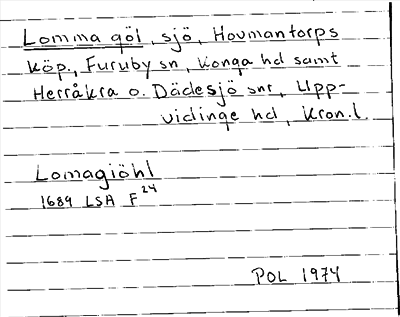 Lomma göl, sjö, Hovmantorps
köp., Furuby sn, Konga hd samt
Herråkra o. Dädesjö snr, Upp-
vidinge hd, Kron.l.
Lomagiöhl
1689 LSA F24
POL 1974